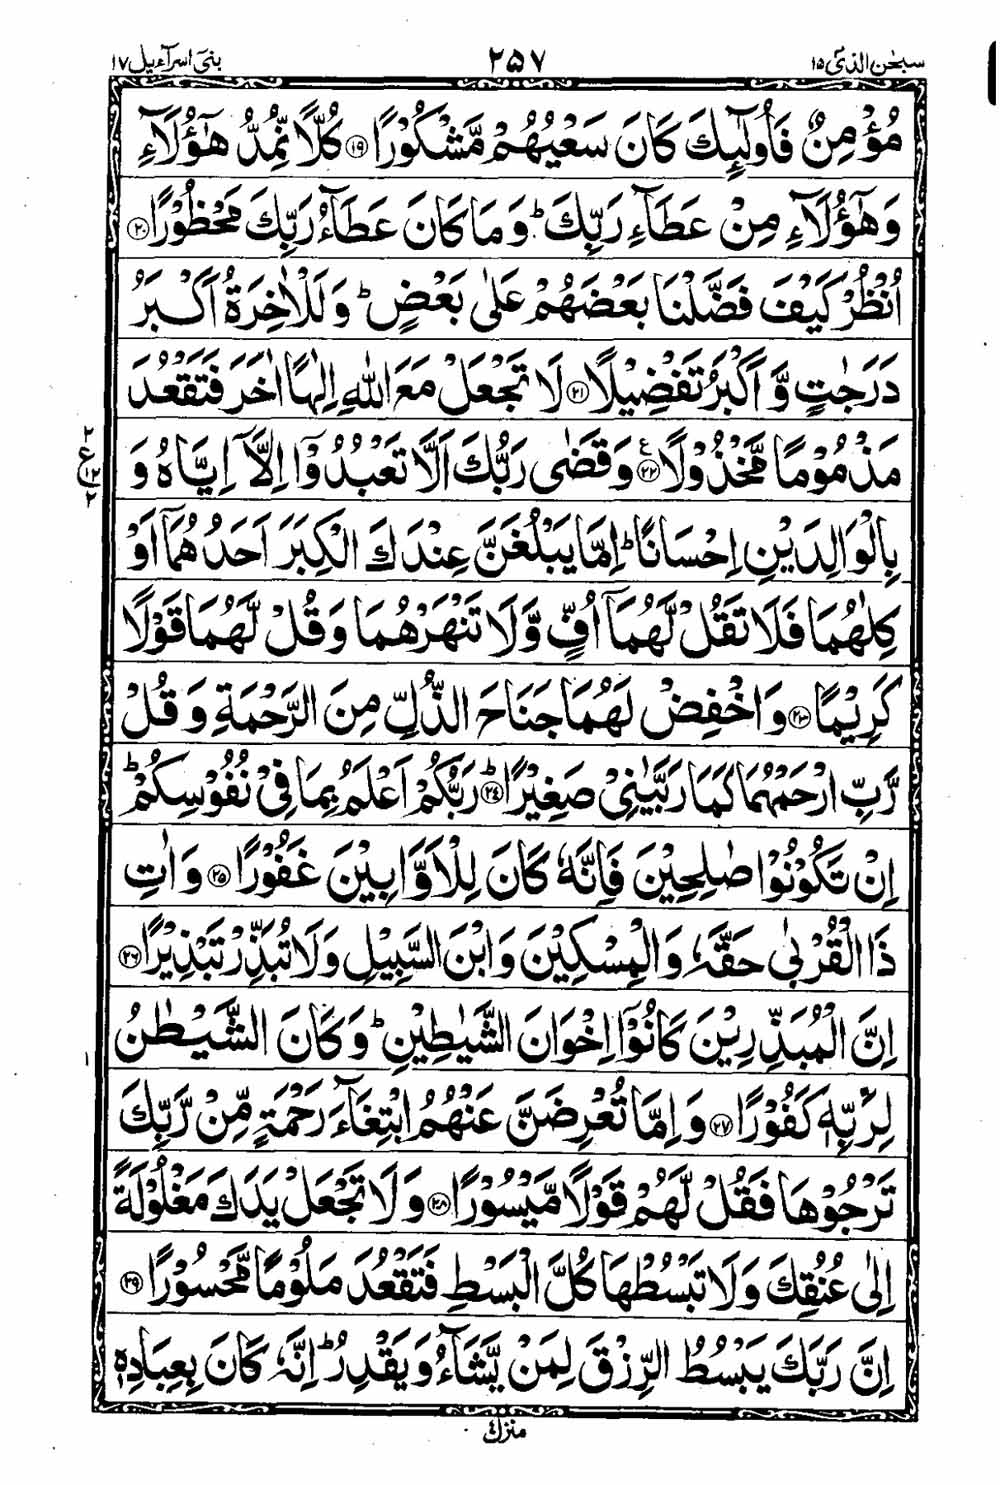 سبحٰن الذی ۱۵
۲۵۷
بنی اسرآءیل ۱۷
مُؤْمِنٌ فَاُولٰٓئِكَ كَانَ سَعْيُهُمْ مَّشْكُوْرًا ﴿۱۹﴾ كُلًّا نُّمِدُّ هٰٓؤُلَآءِ
وَهٰٓؤُلَآءِ مِنْ عَطَآءِ رَبِّكَ ؕ وَمَا كَانَ عَطَآءُ رَبِّكَ مَحْظُوْرًا ﴿۲۰﴾
اُنْظُرْ كَيْفَ فَضَّلْنَا بَعْضَهُمْ عَلٰى بَعْضٍ ؕ وَلَلْاٰخِرَةُ اَكْبَرُ
دَرَجٰتٍ وَّاَكْبَرُ تَفْضِيْلًا ﴿۲۱﴾ لَا تَجْعَلْ مَعَ اللّٰهِ اِلٰهًا اٰخَرَ فَتَقْعُدَ
مَذْمُوْمًا مَّخْذُوْلًا ﴿۲۲﴾ ع وَقَضٰى رَبُّكَ اَلَّا تَعْبُدُوْٓا اِلَّآ اِيَّاهُ وَ
۲
ع
۱۲
۲
بِالْوَالِدَيْنِ اِحْسَانًا ؕ اِمَّا يَبْلُغَنَّ عِنْدَكَ الْكِبَرَ اَحَدُهُمَآ اَوْ
كِلٰهُمَا فَلَا تَقُلْ لَّهُمَآ اُفٍّ وَّلَا تَنْهَرْهُمَا وَقُلْ لَّهُمَا قَوْلًا
كَرِيْمًا ﴿۲۳﴾ وَاخْفِضْ لَهُمَا جَنَاحَ الذُّلِّ مِنَ الرَّحْمَةِ وَقُلْ
رَّبِّ ارْحَمْهُمَا كَمَا رَبَّيٰنِيْ صَغِيْرًا ؕ ﴿۲۴﴾ رَبُّكُمْ اَعْلَمُ بِمَا فِيْ نُفُوْسِكُمْ ؕ
اِنْ تَكُوْنُوْا صٰلِحِيْنَ فَاِنَّهٗ كَانَ لِلْاَوَّابِيْنَ غَفُوْرًا ﴿۲۵﴾ وَاٰتِ
ذَا الْقُرْبٰى حَقَّهٗ وَالْمِسْكِيْنَ وَابْنَ السَّبِيْلِ وَلَا تُبَذِّرْ تَبْذِيْرًا ﴿۲۶﴾
اِنَّ الْمُبَذِّرِيْنَ كَانُوْٓا اِخْوَانَ الشَّيٰطِيْنِ ؕ وَكَانَ الشَّيْطٰنُ
لِرَبِّهٖ كَفُوْرًا ﴿۲۷﴾ وَاِمَّا تُعْرِضَنَّ عَنْهُمُ ابْتِغَآءَ رَحْمَةٍ مِّنْ رَّبِّكَ
تَرْجُوْهَا فَقُلْ لَّهُمْ قَوْلًا مَّيْسُوْرًا ﴿۲۸﴾ وَلَا تَجْعَلْ يَدَكَ مَغْلُوْلَةً
اِلٰى عُنُقِكَ وَلَا تَبْسُطْهَا كُلَّ الْبَسْطِ فَتَقْعُدَ مَلُوْمًا مَّحْسُوْرًا ﴿۲۹﴾
اِنَّ رَبَّكَ يَبْسُطُ الرِّزْقَ لِمَنْ يَّشَآءُ وَيَقْدِرُ ؕ اِنَّهٗ كَانَ بِعِبَادِهٖ
منزل ٤